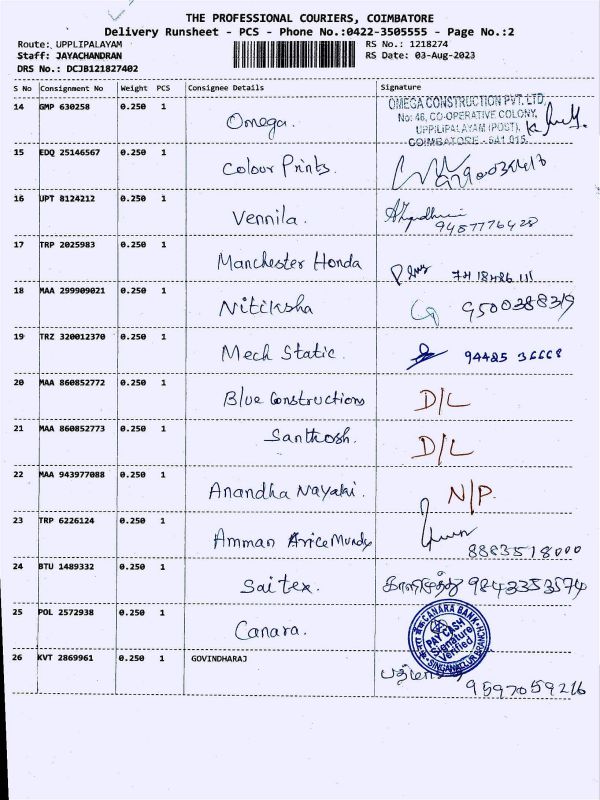 THE PROFESSIONAL COURIERS, COIMBATORE
Delivery Runsheet - PCS - Phone No.:0422-3505555 - Page No.:2
Route: UPPLIPALAYAM RS No.: 1218274
Staff: JAYACHANDRAN RS Date: 03-Aug-2023
DRS No.: DCJB121827402
S No Consignment No Weight PCS Consignee Details Signature
14 GMP 630258 0.250 1 Omega.
OMEGA CONSTRUCTION PVT. LTD,
No: 46, CO-OPERATIVE COLONY,
UPPILIPALAYAM (POST),
COIMBATORE - 641 015.
15 EDQ 25146567 0.250 1 Colour Prints.
16 UPT 8124212 0.250 1 Vennila. 9487776428
17 TRP 2025983 0.250 1 Manchester Honda
18 MAA 299909021 0.250 1 Nitiksha 9500388319
19 TRZ 320012370 0.250 1 Mech Static. 94425 36668
20 MAA 860852772 0.250 1 Blue Constructions D/L
21 MAA 860852773 0.250 1 Santhosh. D/L
22 MAA 943977088 0.250 1 Anandha Nayaki. N/P.
23 TRP 6226124 0.250 1 Amman 8883518000
24 BTU 1489332 0.250 1 Saitex. 9843353574
25 POL 2572938 0.250 1 Canara.
CANARA BANK
PAY CASH
Signature
Verified
SINGANALLUR BRANCH
26 KVT 2869961 0.250 1 GOVINDHARAJ
9597059216